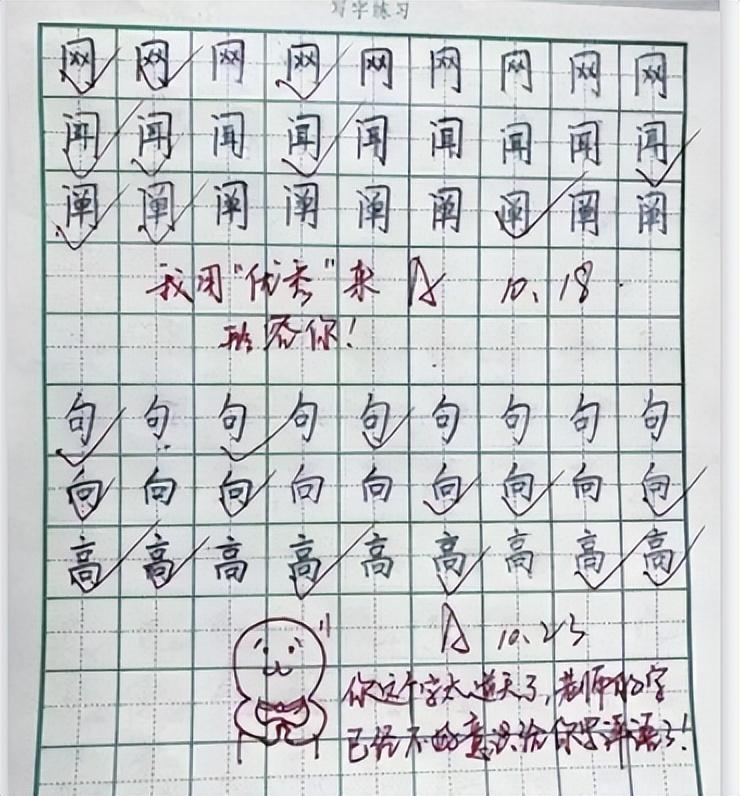 写字练习
网 网 网 网 网 网 网 网 网
闻 闻 闻 闻 闻 闻 闻 闻 闻
阐 阐 阐 阐 阐 阐 阐 阐 阐
我用"优秀"来 A 10.18
形容你!
句 句 句 句 句 句 句 句 句
向 向 向 向 向 向 向 向 向
高 高 高 高 高 高 高 高 高
A 10.23
你这个字太逆天了,老师的字
已经不好意思给你写评语了!